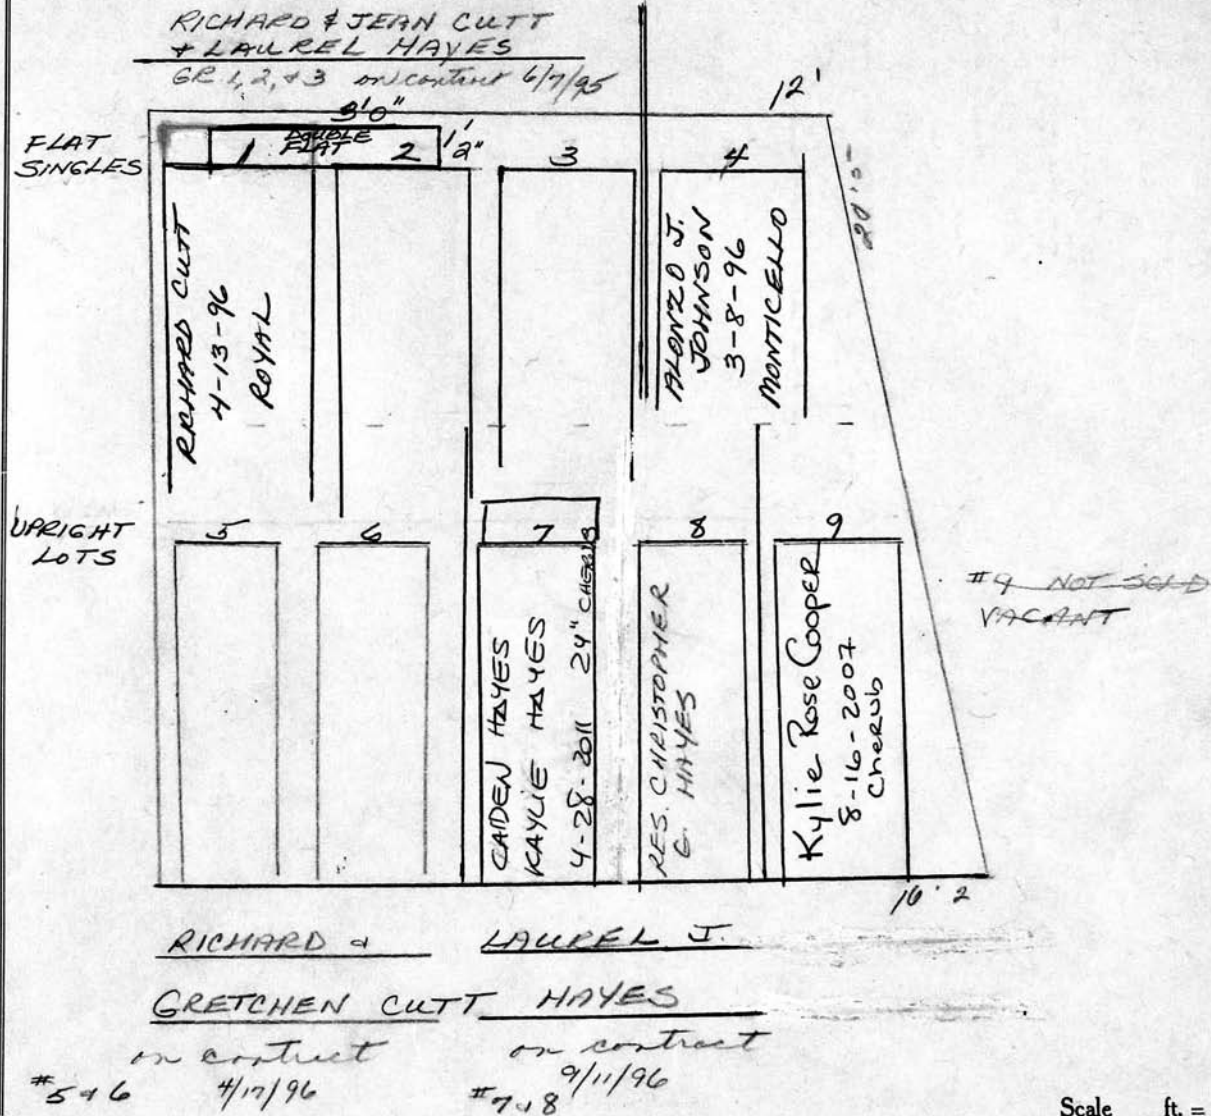 RICHARD & JEAN CUTT
& LAUREL HAYES
GR. 1, 2, & 3 on contract 6/7/95
12'
3'0"
FLAT
SINGLES
1
DOUBLE
FLAT
2
1'
2"
3
4
20'5"
RICHARD CUTT
4-13-96
ROYAL
ALONZO J.
JOHNSON
3-8-96
MONTICELLO
UPRIGHT
LOTS
5
6
7
8
9
#9 NOT SOLD
VACANT
CAIDEN HAYES
KAYLIE HAYES
4-28-2011 24" CHERUB
RES. CHRISTOPHER
G. HAYES
Kylie Rose Cooper
8-16-2007
Cherub
16' 2
RICHARD &
GRETCHEN CUTT
on contract
#5 & 6 4/17/96
LAUREL J.
HAYES
on contract
9/11/96
#7 & 8
Scale ft. =